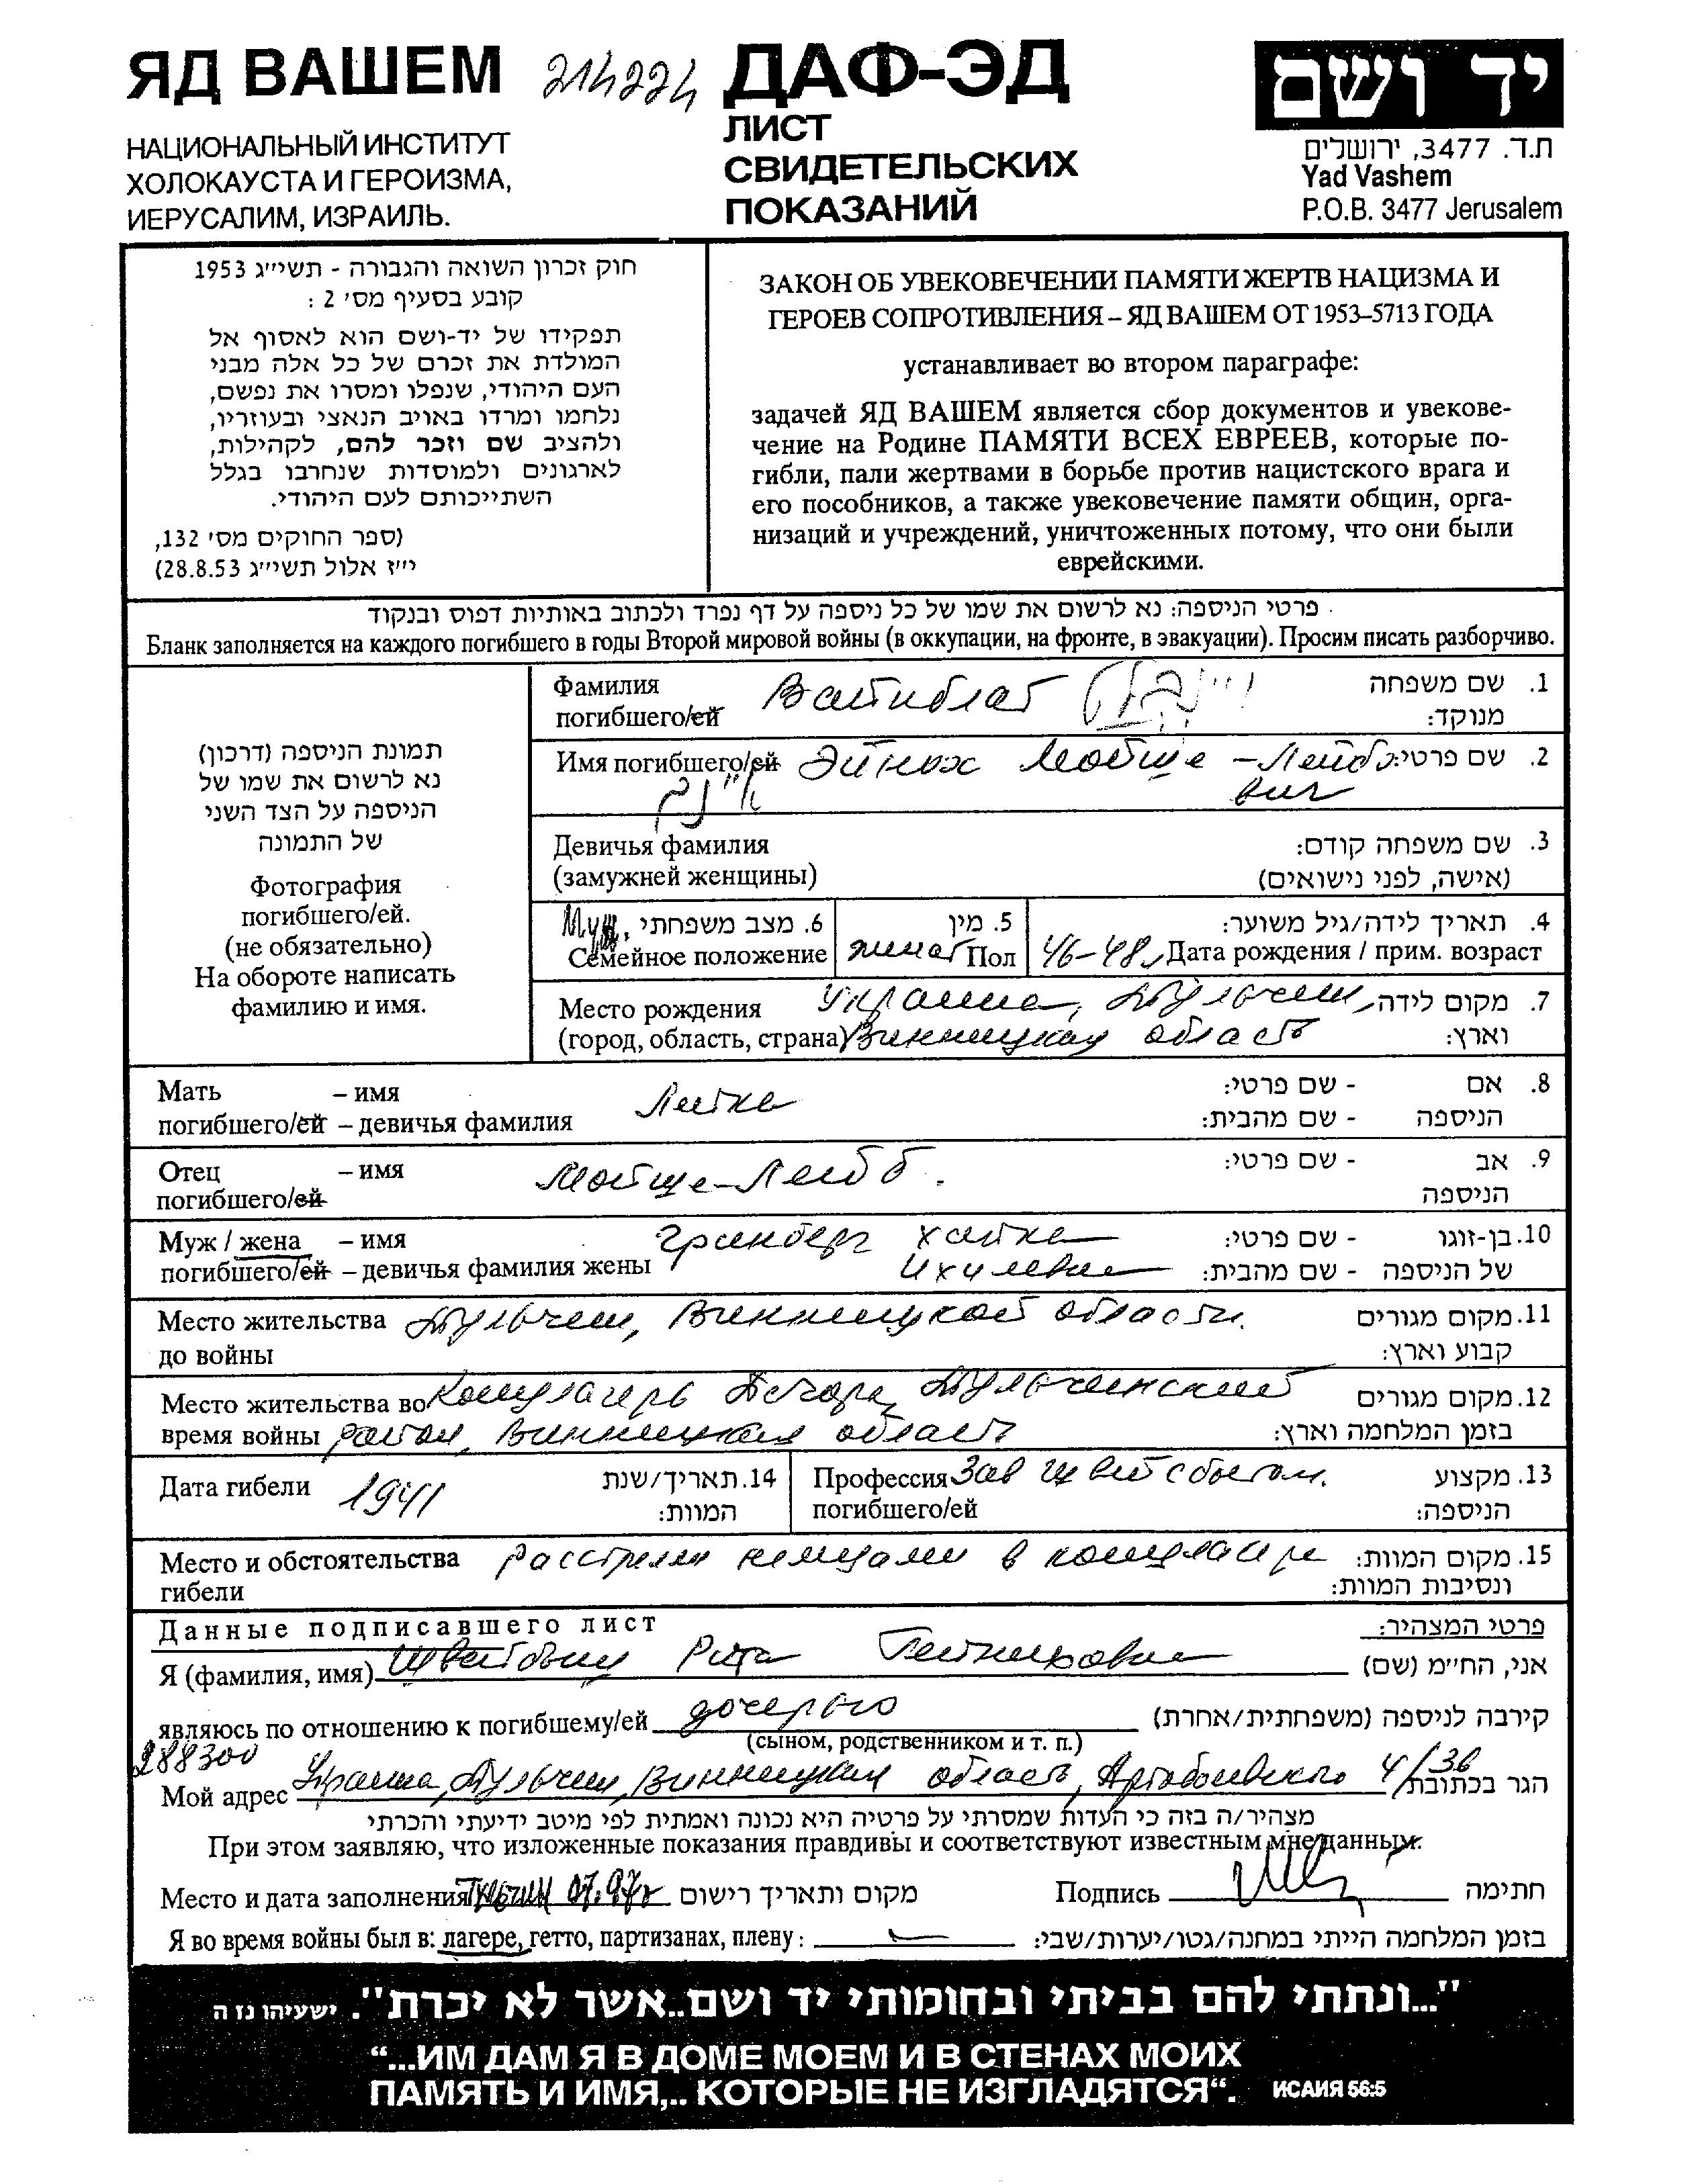 ЯД ВАШЕМ
214224
ДАФ-ЭД
יד ושם
НАЦИОНАЛЬНЫЙ ИНСТИТУТ
ХОЛОКАУСТА И ГЕРОИЗМА,
ИЕРУСАЛИМ, ИЗРАИЛЬ.
ЛИСТ
СВИДЕТЕЛЬСКИХ
ПОКАЗАНИЙ
ת.ד. 3477, ירושלים
Yad Vashem
P.O.B. 3477 Jerusalem
חוק זכרון השואה והגבורה - תשי״ג 1953
קובע בסעיף מס׳ 2 :
תפקידו של יד-ושם הוא לאסוף אל
המולדת את זכרם של כל אלה מבני
העם היהודי, שנפלו ומסרו את נפשם,
נלחמו ומרדו באויב הנאצי ובעוזריו,
ולהציב שם וזכר להם, לקהילות,
לארגונים ולמוסדות שנחרבו בגלל
השתייכותם לעם היהודי.
(ספר החוקים מס׳ 132,
י״ז אלול תשי״ג 28.8.53)
ЗАКОН ОБ УВЕКОВЕЧЕНИИ ПАМЯТИ ЖЕРТВ НАЦИЗМА И
ГЕРОЕВ СОПРОТИВЛЕНИЯ – ЯД ВАШЕМ ОТ 1953–5713 ГОДА
устанавливает во втором параграфе:
задачей ЯД ВАШЕМ является сбор документов и увекове-
чение на Родине ПАМЯТИ ВСЕХ ЕВРЕЕВ, которые по-
гибли, пали жертвами в борьбе против нацистского врага и
его пособников, а также увековечение памяти общин, орга-
низаций и учреждений, уничтоженных потому, что они были
еврейскими.
פרטי הניספה: נא לרשום את שמו של כל ניספה על דף נפרד ולכתוב באותיות דפוס ובנקוד
Бланк заполняется на каждого погибшего в годы Второй мировой войны (в оккупации, на фронте, в эвакуации). Просим писать разборчиво.
תמונת הניספה (דרכון)
נא לרשום את שמו של
הניספה על הצד השני
של התמונה
Фотография
погибшего/ей.
(не обязательно)
На обороте написать
фамилию и имя.
Фамилия Вайнблат 1. שם משפחה
погибшего/ей מנוקד:
Имя погибшего/ей Эйнох Мойше-Лейбо 2. שם פרטי:
вич
Девичья фамилия 3. שם משפחה קודם:
(замужней женщины) (אישה, לפני נישואים)
Муж, 6. מצב משפחתי 5. מין 4. תאריך לידה/גיל משוער:
Семейное положение Пол 46-48 Дата рождения / прим. возраст
Место рождения Украина, Тульчин, 7. מקום לידה
(город, область, страна) Винницкая область וארץ:
Мать – имя Лейка 8. אם - שם פרטי:
погибшего/ей – девичья фамилия הניספה - שם מהבית:
Отец – имя Мойше-Лейб 9. אב - שם פרטי:
погибшего/ей הניספה
Муж / жена – имя Гринберг Хайка 10. בן-זוגו - שם פרטי:
погибшего/ей – девичья фамилия жены Ихилевна של הניספה - שם מהבית:
Место жительства Тульчин, Винницкой области. 11. מקום מגורים
до войны קבוע וארץ:
Место жительства во Концлагерь Печора, Тульчинский 12. מקום מגורים
время войны район, Винницкая область בזמן המלחמה וארץ:
Дата гибели 1941 14. תאריך/שנת Профессия Зав 13. מקצוע
המוות: погибшего/ей הניספה:
Место и обстоятельства расстрелян немцами в концлагере 15. מקום המוות:
гибели ונסיבות המוות:
Данные подписавшего лист פרטי המצהיר:
Я (фамилия, имя) Рита אני, הח״מ (שם)
являюсь по отношению к погибшему/ей дочерью קירבה לניספה (משפחתית/אחרת)
(сыном, родственником и т. п.)
288300
Мой адрес Украина, Тульчин, Винницкая область, 4/36 הגר בכתובת
מצהיר/ה בזה כי העדות שמסרתי על פרטיה היא נכונה ואמתית לפי מיטב ידיעתי והכרתי
При этом заявляю, что изложенные показания правдивы и соответствуют известным мне данным.
Место и дата заполнения Тульчин 07.97г מקום ותאריך רישום Подпись חתימה
Я во время войны был в: лагере, гетто, партизанах, плену: בזמן המלחמה הייתי במחנה/גטו/יערות/שבי:
"...ונתתי להם בביתי ובחומותי יד ושם..אשר לא יכרת". ישעיהו נו ה
“...ИМ ДАМ Я В ДОМЕ МОЕМ И В СТЕНАХ МОИХ
ПАМЯТЬ И ИМЯ,.. КОТОРЫЕ НЕ ИЗГЛАДЯТСЯ“. ИСАИЯ 56:5